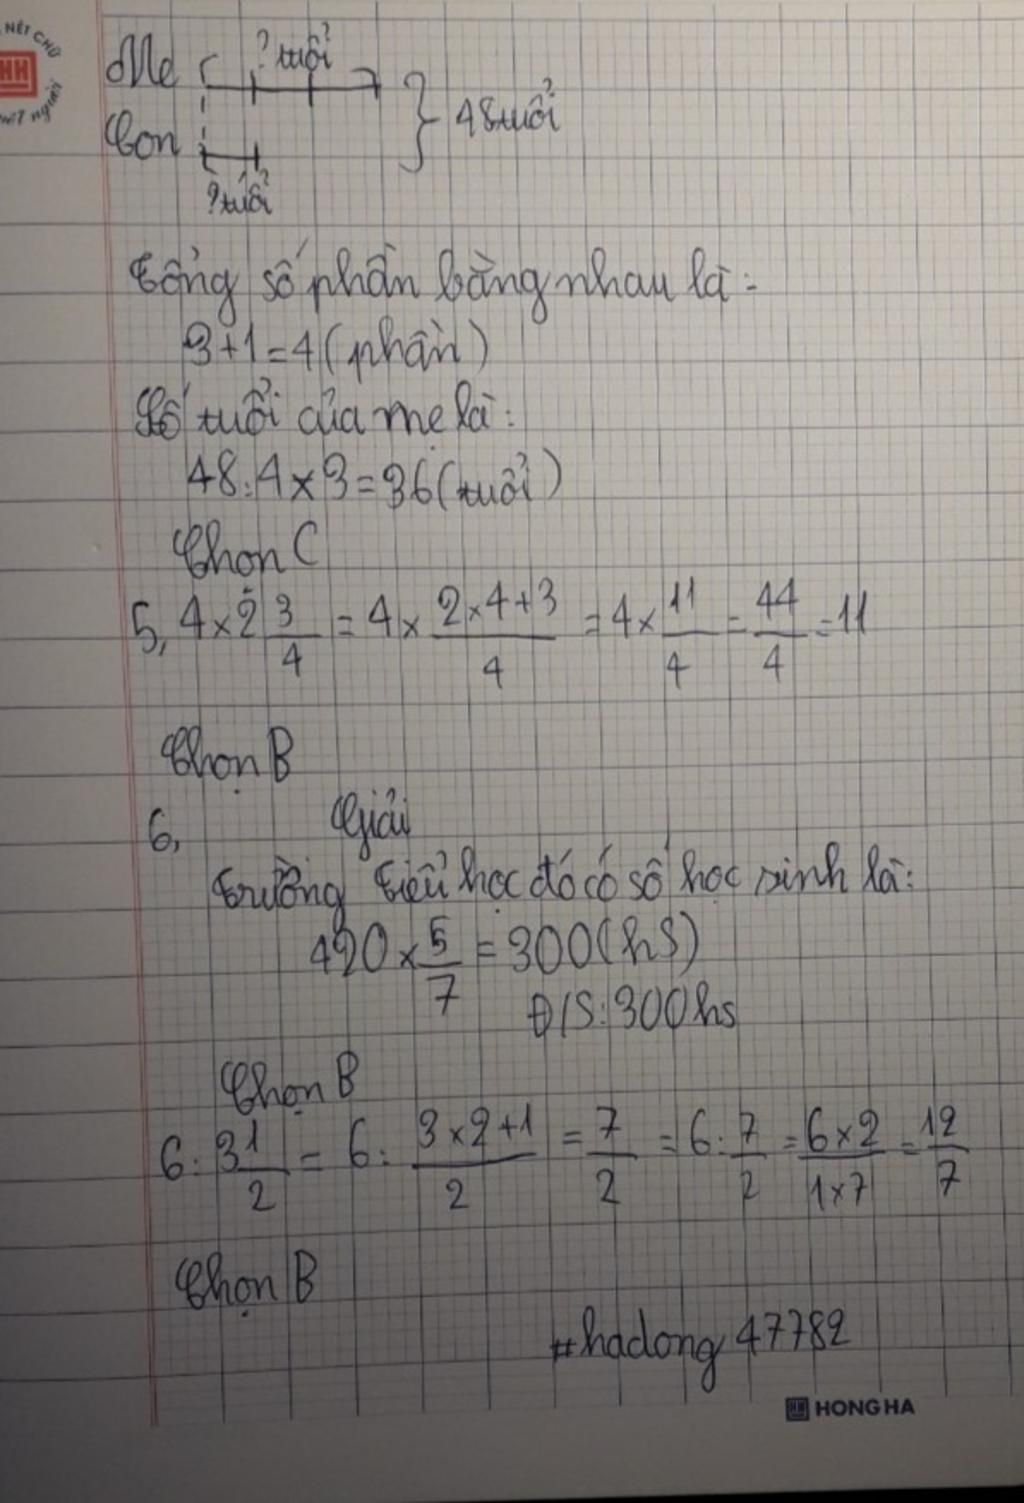 NÉT CHỮ
HH
nết người
Mẹ ? tuổi
48 tuổi
Con
? tuổi
Tổng số phần bằng nhau là:
3+1=4(phần)
Số tuổi của mẹ là:
48:4×3=36(tuổi)
Chọn C
5, 4×2 3/4 = 4× (2×4+3)/4 = 4× 11/4 = 44/4 = 11
Chọn B
6, Giải
Trường tiểu học đó có số học sinh là:
420× 5/7 = 300(hS)
Đ/S: 300hs
Chọn B
6: 3 1/2 = 6: (3×2+1)/2 = 7/2 = 6: 7/2 = (6×2)/(1×7) = 12/7
Chọn B
#hadong 47782
HH HONG HA